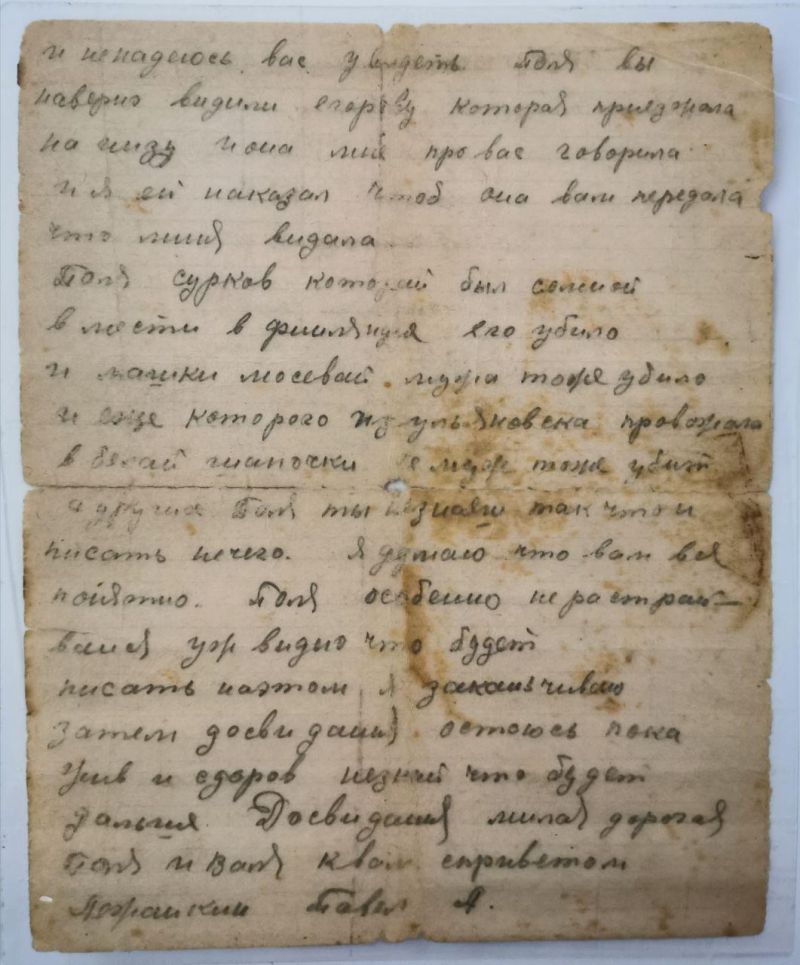 и ненадеюсь вас увидеть Поля вы
наверно видили егорову которая приезжала
на низу и она мне про вас говорила
и я ей наказал чтоб она вам передала
что миня видала
Поля сурков который был сомной
в мести в финлянция его убило
и машки мосевай мужа тоже убило
и еще которого из ульяновска провожала
в белай шапочки ее муж тоже убит
а другия Поля ты незнаеш так что и
писать нечего. Я думаю что вам вся
понятно. Поля особенно нерастраи-
вайся уж видно что будет
писать наэтом я заканьчиваю
затем досвидания остоюсь пока
жив и сдоров незнай что будет
дальшя Досвидания милая дорогая
Поля и Валя квам сприветом
Павел А.